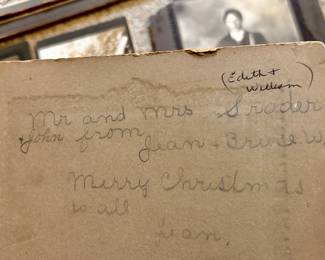 (Edith +
William)
Mr and Mrs Srader
+ John from
Jean + Bruce W.
Merry Christmas
to all
Jean.